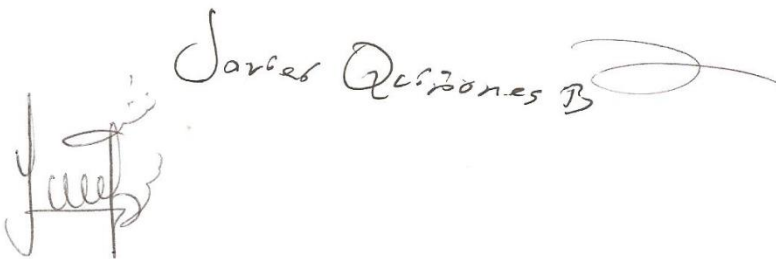 Javier Quiñones B